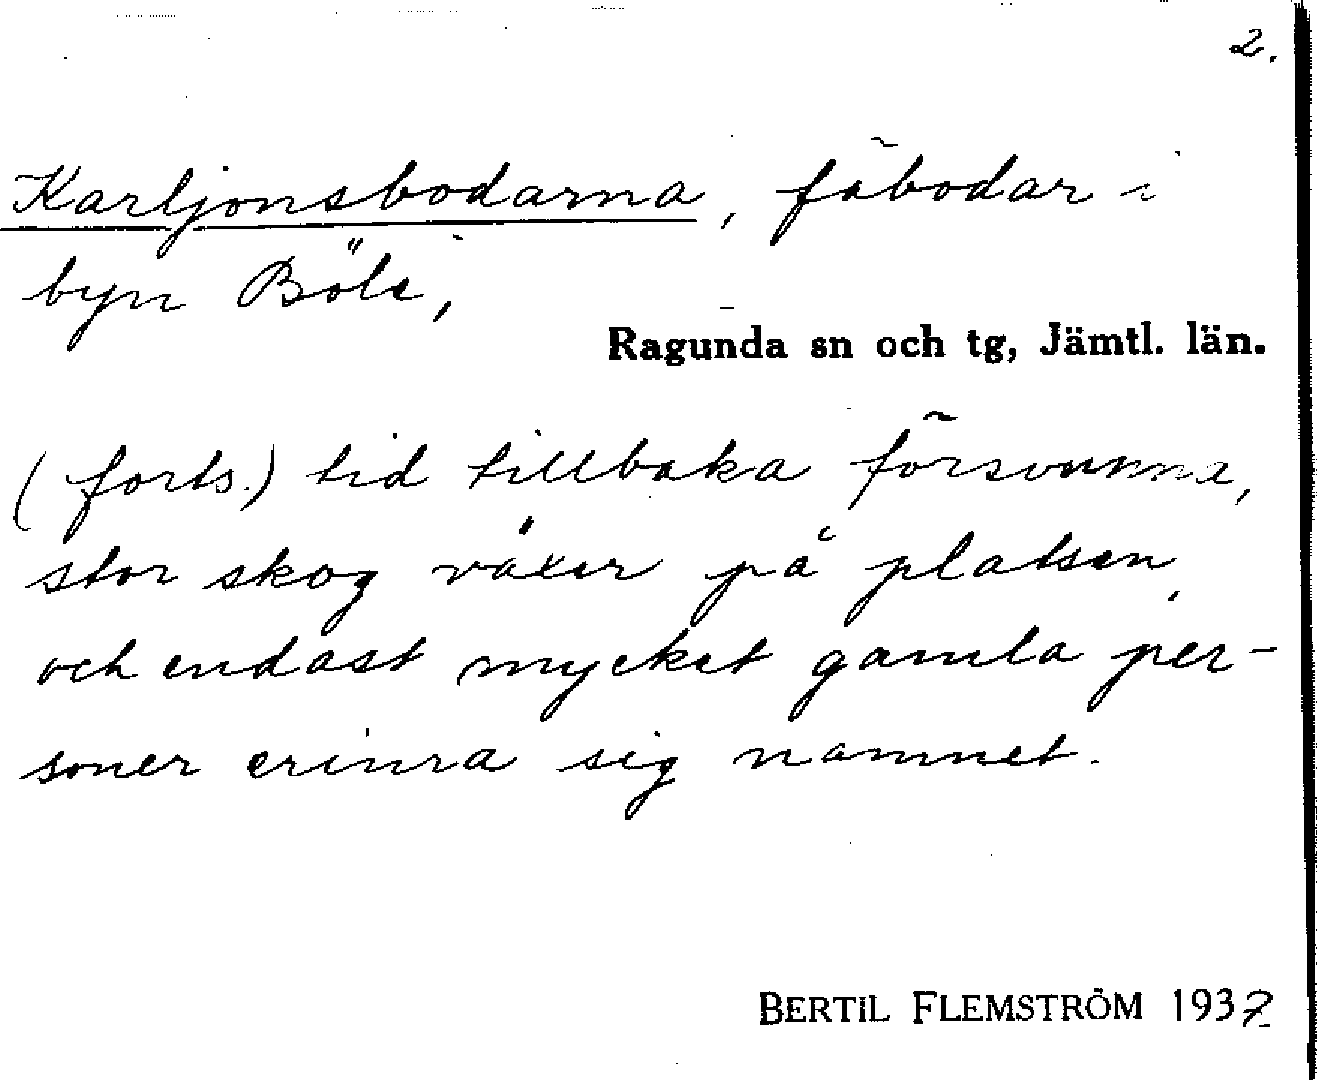 2.
Karljonsbodarna, fäbodar i
byn Böle,
Ragunda sn och tg, Jämtl. län.
(forts.) tid tillbaka försvunna,
stor skog växer på platsen,
och endast mycket gamla per-
soner erinra sig namnet.
BERTIL FLEMSTRÖM 1937